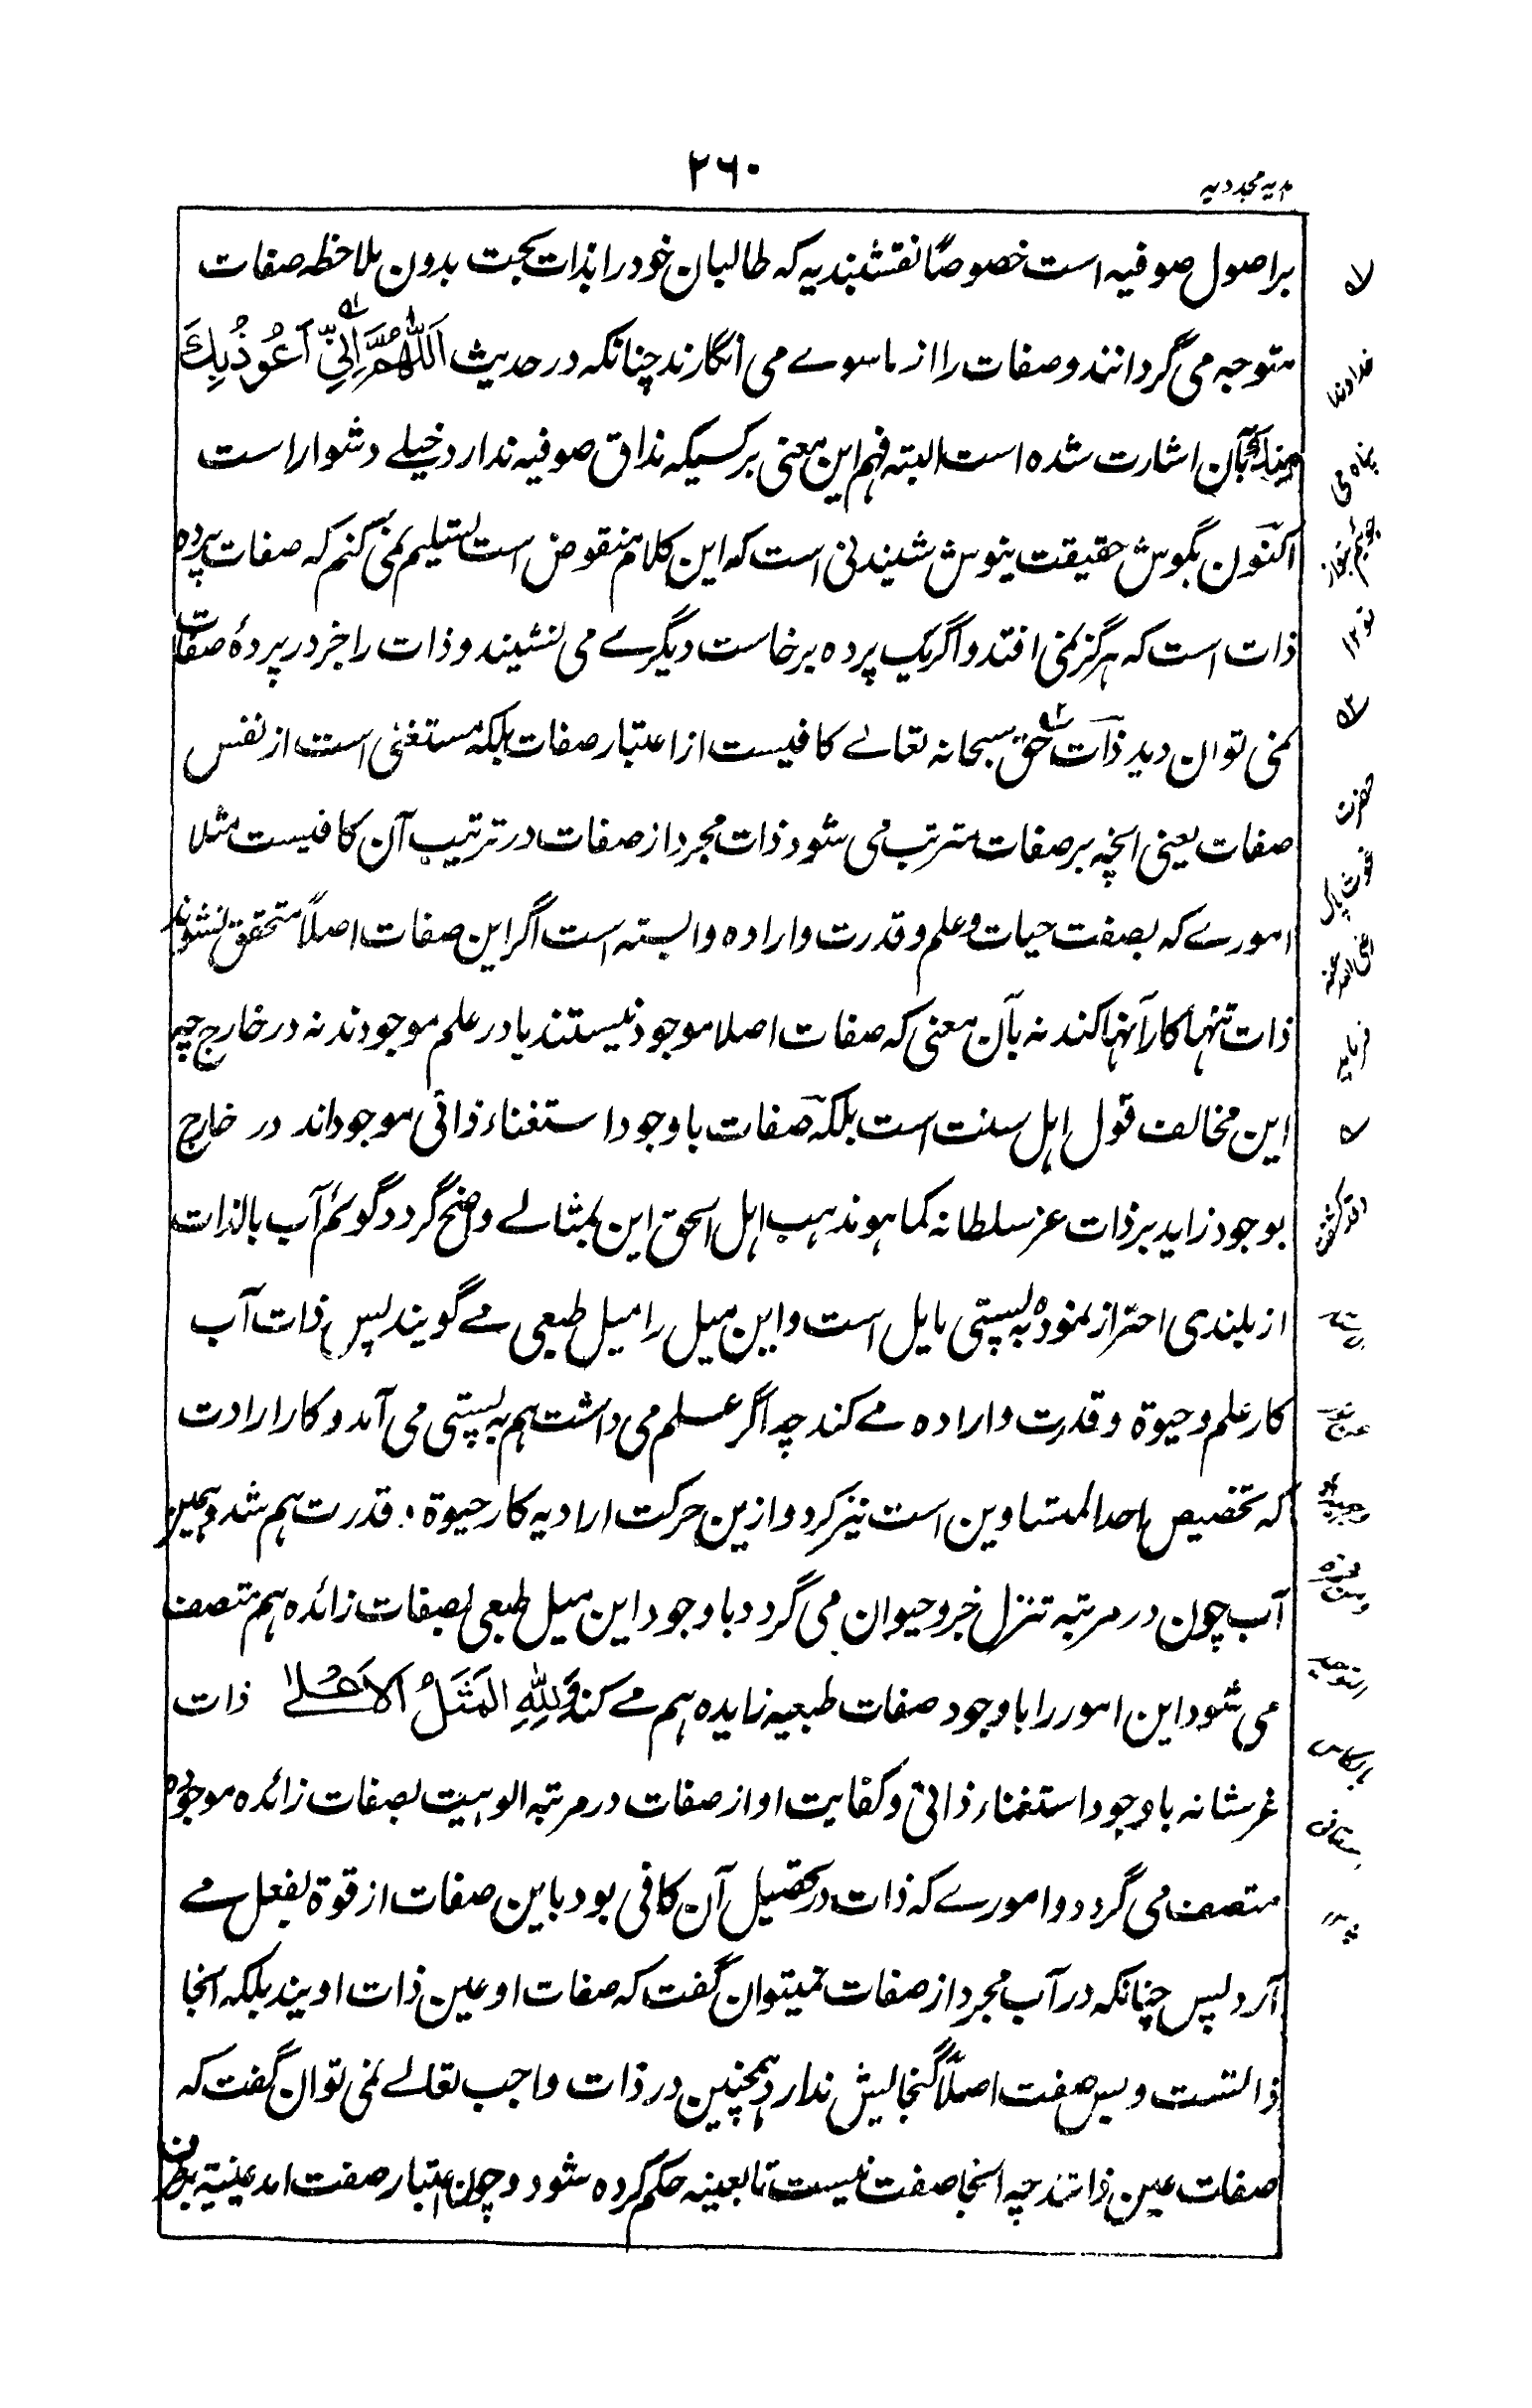 ۲۶۰
ہدیہ مجددیہ
براصول صوفیہ است خصوصًا نقشبندیہ کہ طالبان خود را بذات بحت بدون ملاحظہ صفات
متوجہ می گردانند و صفات را از ماسوے می انگارند چنانکہ در حدیث اَللّٰهُمَّ اِنِّیْ اَعُوْذُ بِكَ
بآن اشارت شدہ است البتہ فہم این معنی بر کسیکہ مذاق صوفیہ ندارد خیلے دشوار است
اکنون بگوش حقیقت نیوش شنیدنی است کہ این کلام منقوض است تسلیم نمی کنم کہ صفات پردہ
ذات است کہ ہرگز نمی افتد و اگر یک پردہ برخاست دیگرے می نشیند و ذات را جز در پردۂ صفات
نمی توان دید ذات حق سبحانہ تعالے کافیست از اعتبار صفات بلکہ مستغنی است از نفس
صفات یعنی انچہ بر صفات مترتب می شود ذات مجرد از صفات در ترتیب آن کافیست مثلا
امورے کہ بصفت حیات و علم و قدرت و ارادہ وابستہ است اگر این صفات اصلاً متحقق نشوند
ذات تنہا کار آنہا کند نہ بآن معنی کہ صفات اصلا موجود نیستند یا در علم موجودند نہ در خارج چہ
این مخالف قول اہل سنت است بلکہ صفات باوجود استغناء ذاتی موجوداند در خارج
بوجود زاید بر ذات عز سلطانہ کما ہو مذہب اہل الحق این بمثالے واضح گردد گوئم آب بالذات
از بلندی احتراز نمودہ بہ پستی مایل است و این میل را میل طبعی مے گویند پس ذات آب
کار علم و حیوۃ و قدرت و ارادہ مے کند چہ اگر علم می داشت ہم بہ پستی می آمد و کار ارادت
کہ تخصیص احد المتساوین است نیز کرد و ازین حرکت ارادیہ کار حیوۃ و قدرت ہم شد و ہمین
آب چون در مرتبہ تنزل جزو حیوان می گردد باوجود این میل طبعی بصفات زائدہ ہم متصف
می شود این امور را باوجود صفات طبعیہ زایدہ ہم مے کند وَلِلّٰهِ الْمَثَلُ الْاَعْلٰے ذات
عز شانہ باوجود استغناء ذاتی و کفایت او از صفات در مرتبہ الوہیت بصفات زائدہ موجودہ
متصف می گردد و امورے کہ ذات در تحصیل آن کافی بود باین صفات از قوۃ بفعل مے
آرد پس چنانکہ در آب مجرد از صفات نمیتوان گفت کہ صفات او عین ذات اویند بلکہ انجا
ذاتست و بس صفت اصلاً گنجایش ندارد ہمچنین در ذات واجب تعالے نمی توان گفت کہ
صفات عین ذاتند چہ انجا صفت نیست تا بعینہ حکم کردہ شود و چون اعتبار صفت امد عینیۃ بطرف
خداوندا
پناہ می
جویم بتو از
تو ۱۲
حضرت
غوث پاک
رضی اللہ عنہ
فرماید